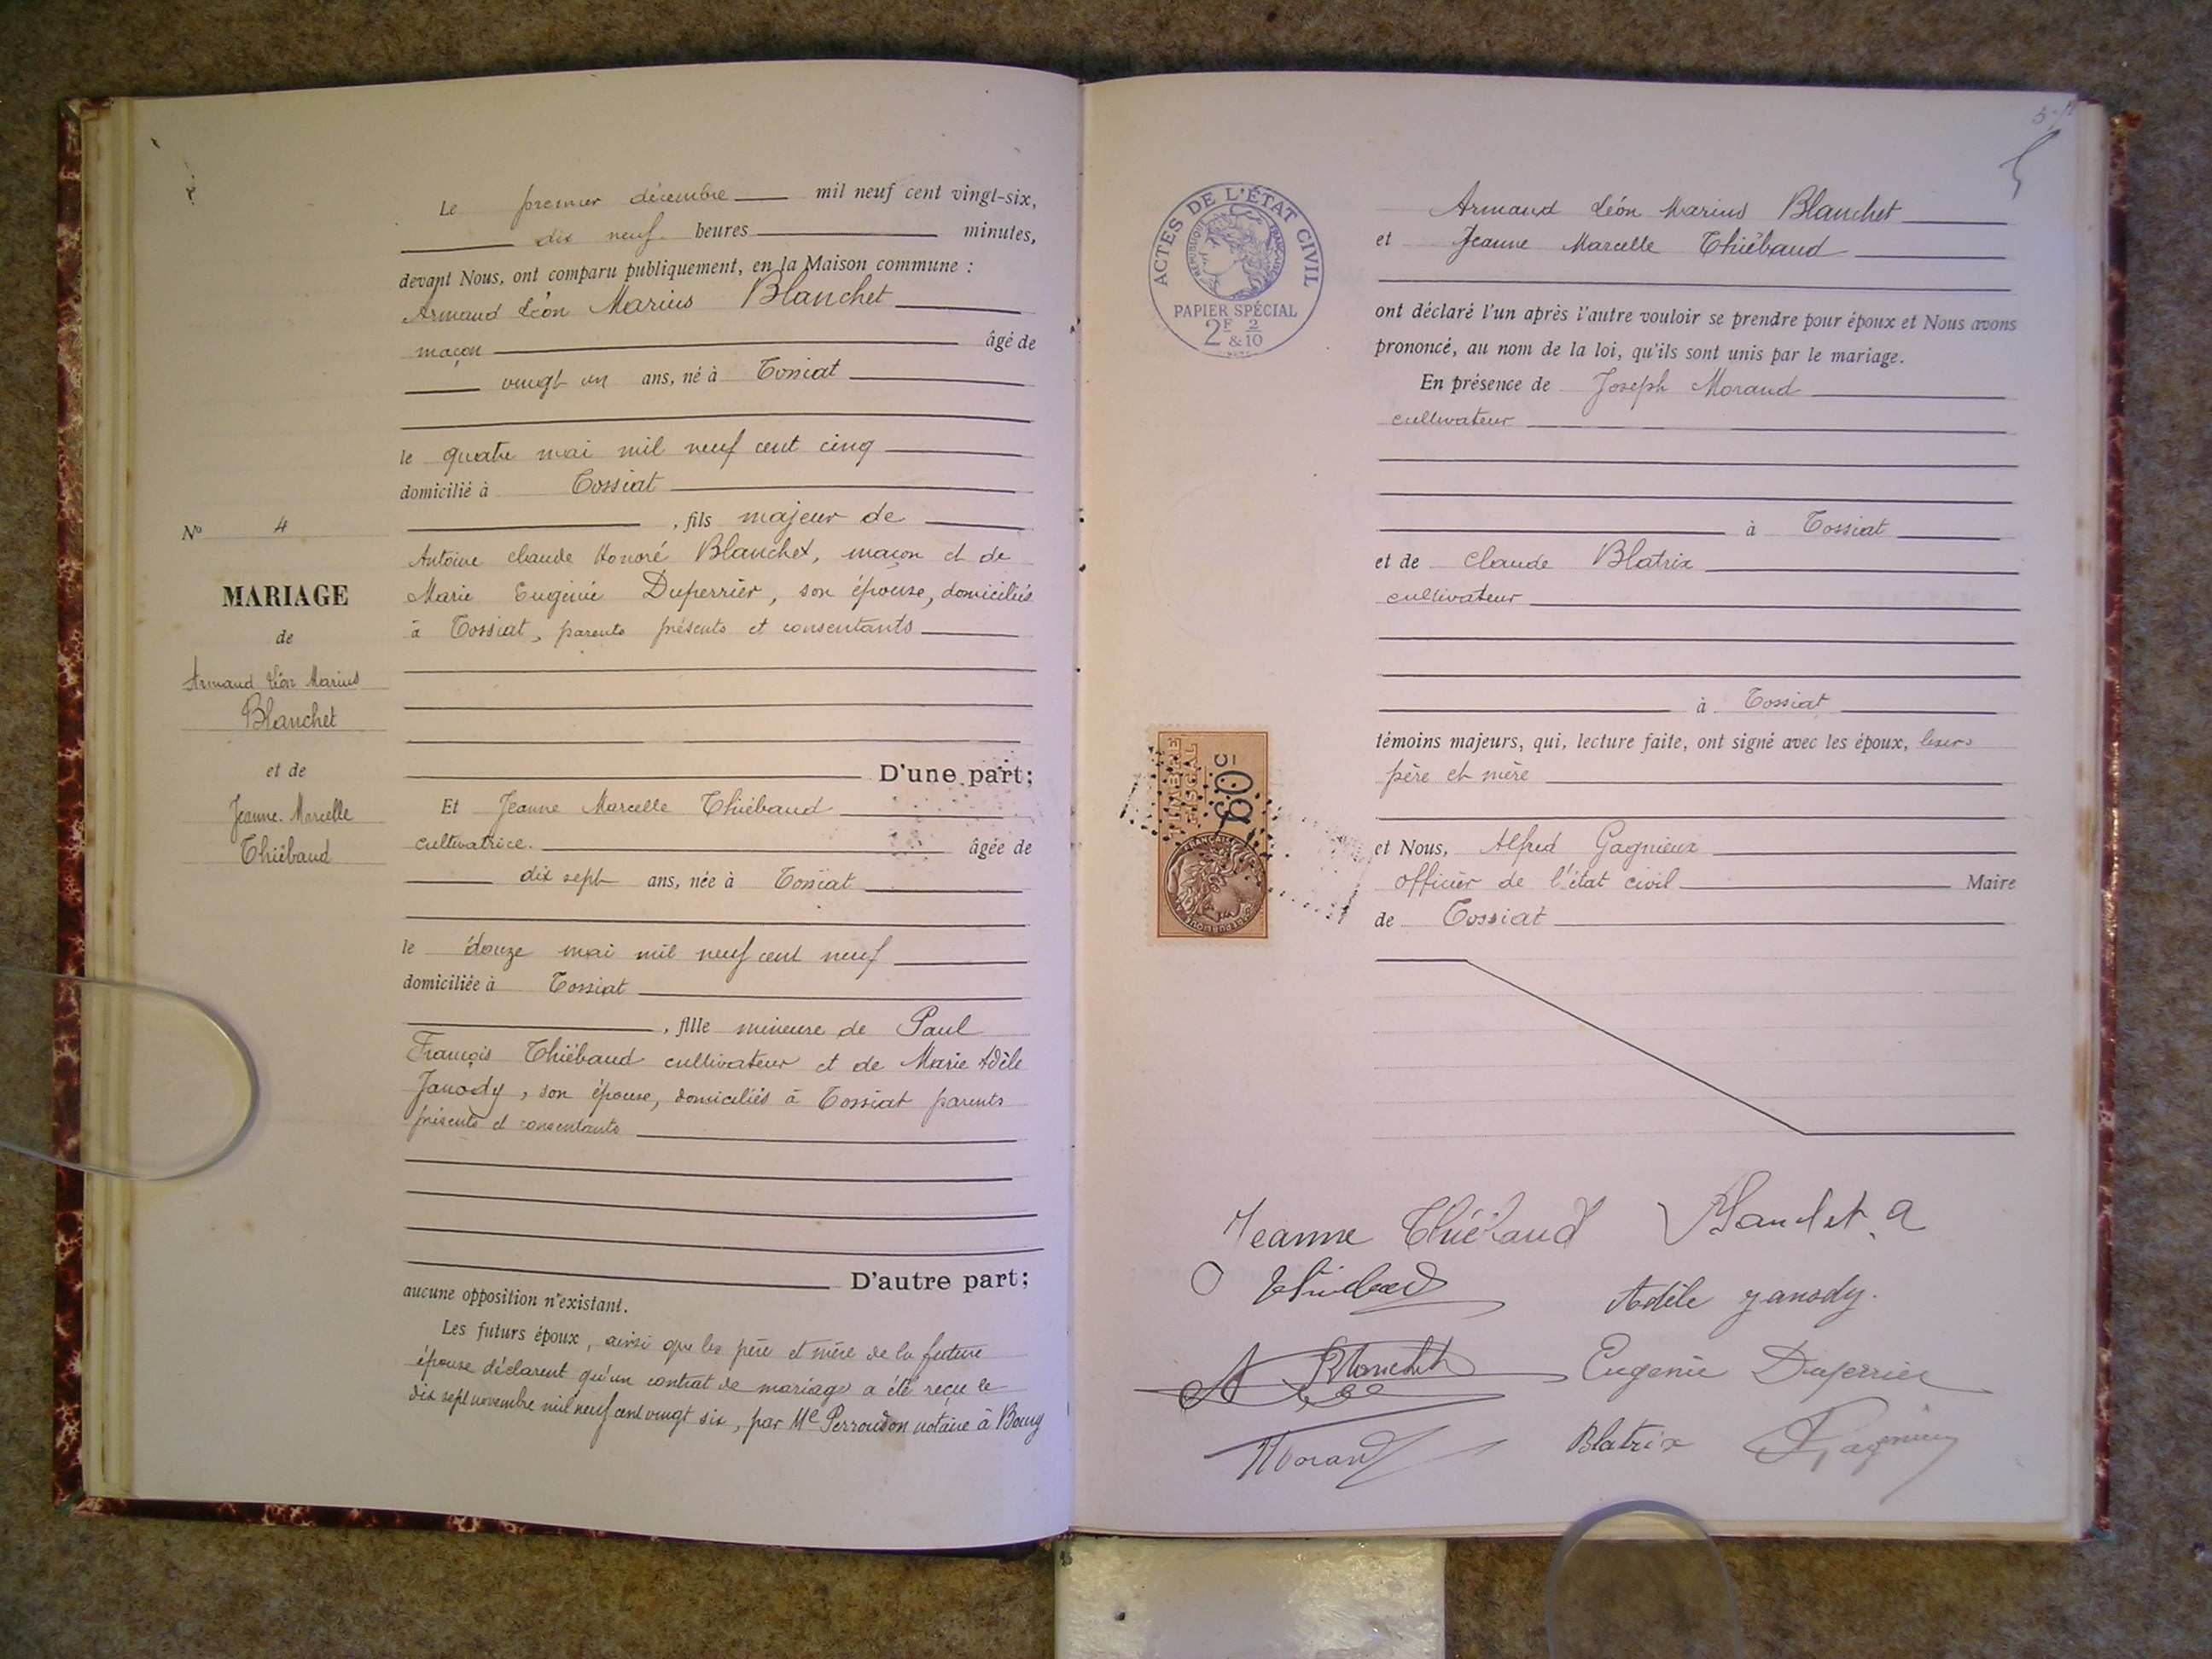 Le premier décembre mil neuf cent vingt-six,
dix neuf heures minutes,
devant Nous, ont comparu publiquement, en la Maison commune :
Armand Léon Marius Blanchet
maçon âgé de
vingt un ans, né à Tossiat
le quatre mai mil neuf cent cinq
domicilié à Tossiat
, fils majeur de
Antoine Claude Honoré Blanchet, maçon et de
Marie Eugénie Duperrier, son épouse, domiciliés
à Tossiat, parents présents et consentants
D'une part;
Et Jeanne Marcelle Thiébaud
cultivatrice. âgée de
dix sept ans, née à Tossiat
le douze mai mil neuf cent neuf
domiciliée à Tossiat
, fille mineure de Paul
François Thiébaud cultivateur et de Marie Adèle
Janody, son épouse, domiciliés à Tossiat parents
présents et consentants
D'autre part;
aucune opposition n'existant.
Les futurs époux, ainsi que les père et mère de la future
épouse déclarent qu'un contrat de mariage a été reçu le
dix sept novembre mil neuf cent vingt six, par Me Perroudon notaire à Bourg
No 4
MARIAGE
de
Armand Léon Marius
Blanchet
et de
Jeanne Marcelle
Thiébaud
5
ACTES DE L'ÉTAT CIVIL
RÉPUBLIQUE FRANÇAISE
PAPIER SPÉCIAL
2F & 2/10
Armand Léon Marius Blanchet
et Jeanne Marcelle Thiébaud
ont déclaré l'un après l'autre vouloir se prendre pour époux et Nous avons
prononcé, au nom de la loi, qu'ils sont unis par le mariage.
En présence de Joseph Morand
cultivateur
à Tossiat
et de Claude Blatrix
cultivateur
à Tossiat
témoins majeurs, qui, lecture faite, ont signé avec les époux, leurs
père et mère
et Nous, Alfred Gagnieux
officier de l'état civil Maire
de Tossiat
TIMBRE
FISCAL
60c
Jeanne Thiébaud Blanchet. A
Thiébaud Adèle Janody.
A Blanchet Eugénie Duperrier
Morand Blatrix A Gagnieux